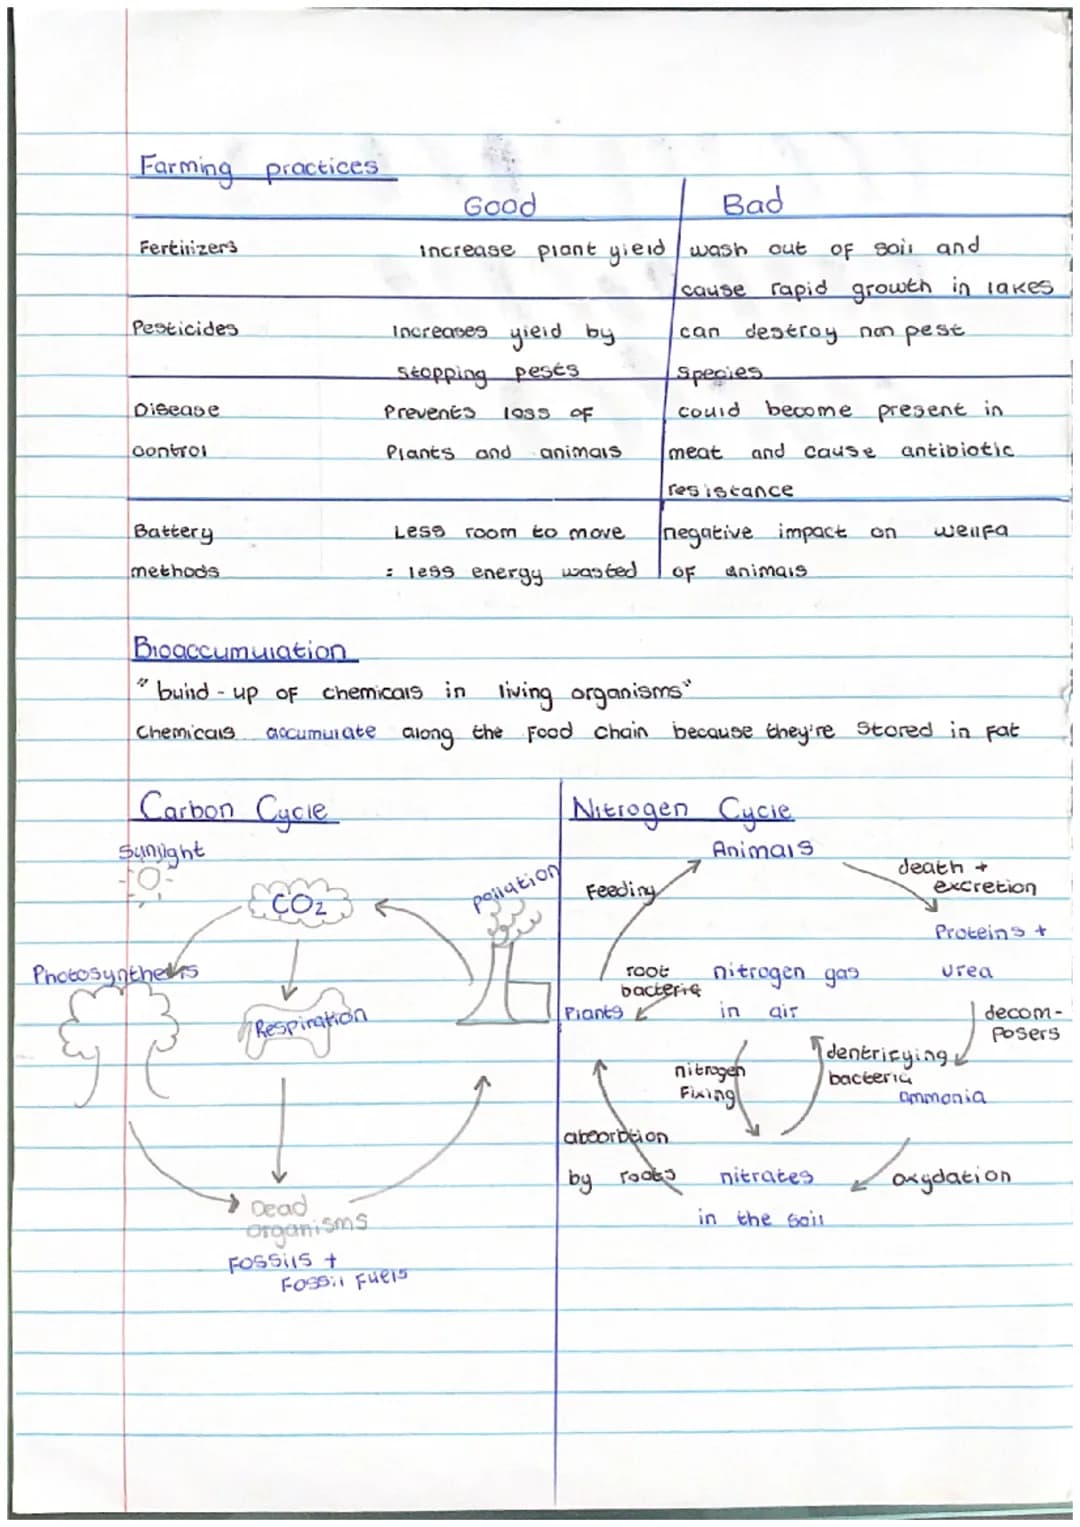 Farming practices
Good Bad
Fertilizers increase plant yield wash out of soil and
cause rapid growth in lakes
Pesticides increases yield by can destroy non pest
stopping pests species
Disease Prevents loss of could become present in
control Plants and animals meat and cause antibiotic
resistance
Battery Less room to move negative impact on wellfa
methods : less energy wasted of animals
Bioaccumulation
"build-up of chemicals in living organisms"
Chemicals accumulate along the food chain because they're stored in fat
Carbon Cycle
Sunlight
CO2
pollution
Photosynthesis
Respiration
Dead
organisms
Fossils +
Fossil Fuels
Nitrogen Cycle
Animals
death +
excretion
Feeding
Proteins +
urea
root
bacteria
nitrogen gas
in air
Plants
decom-
posers
dentrifying
bacteria
nitrogen
Fixing
ammonia
absorbtion
by roots
nitrates
in the soil
oxydation